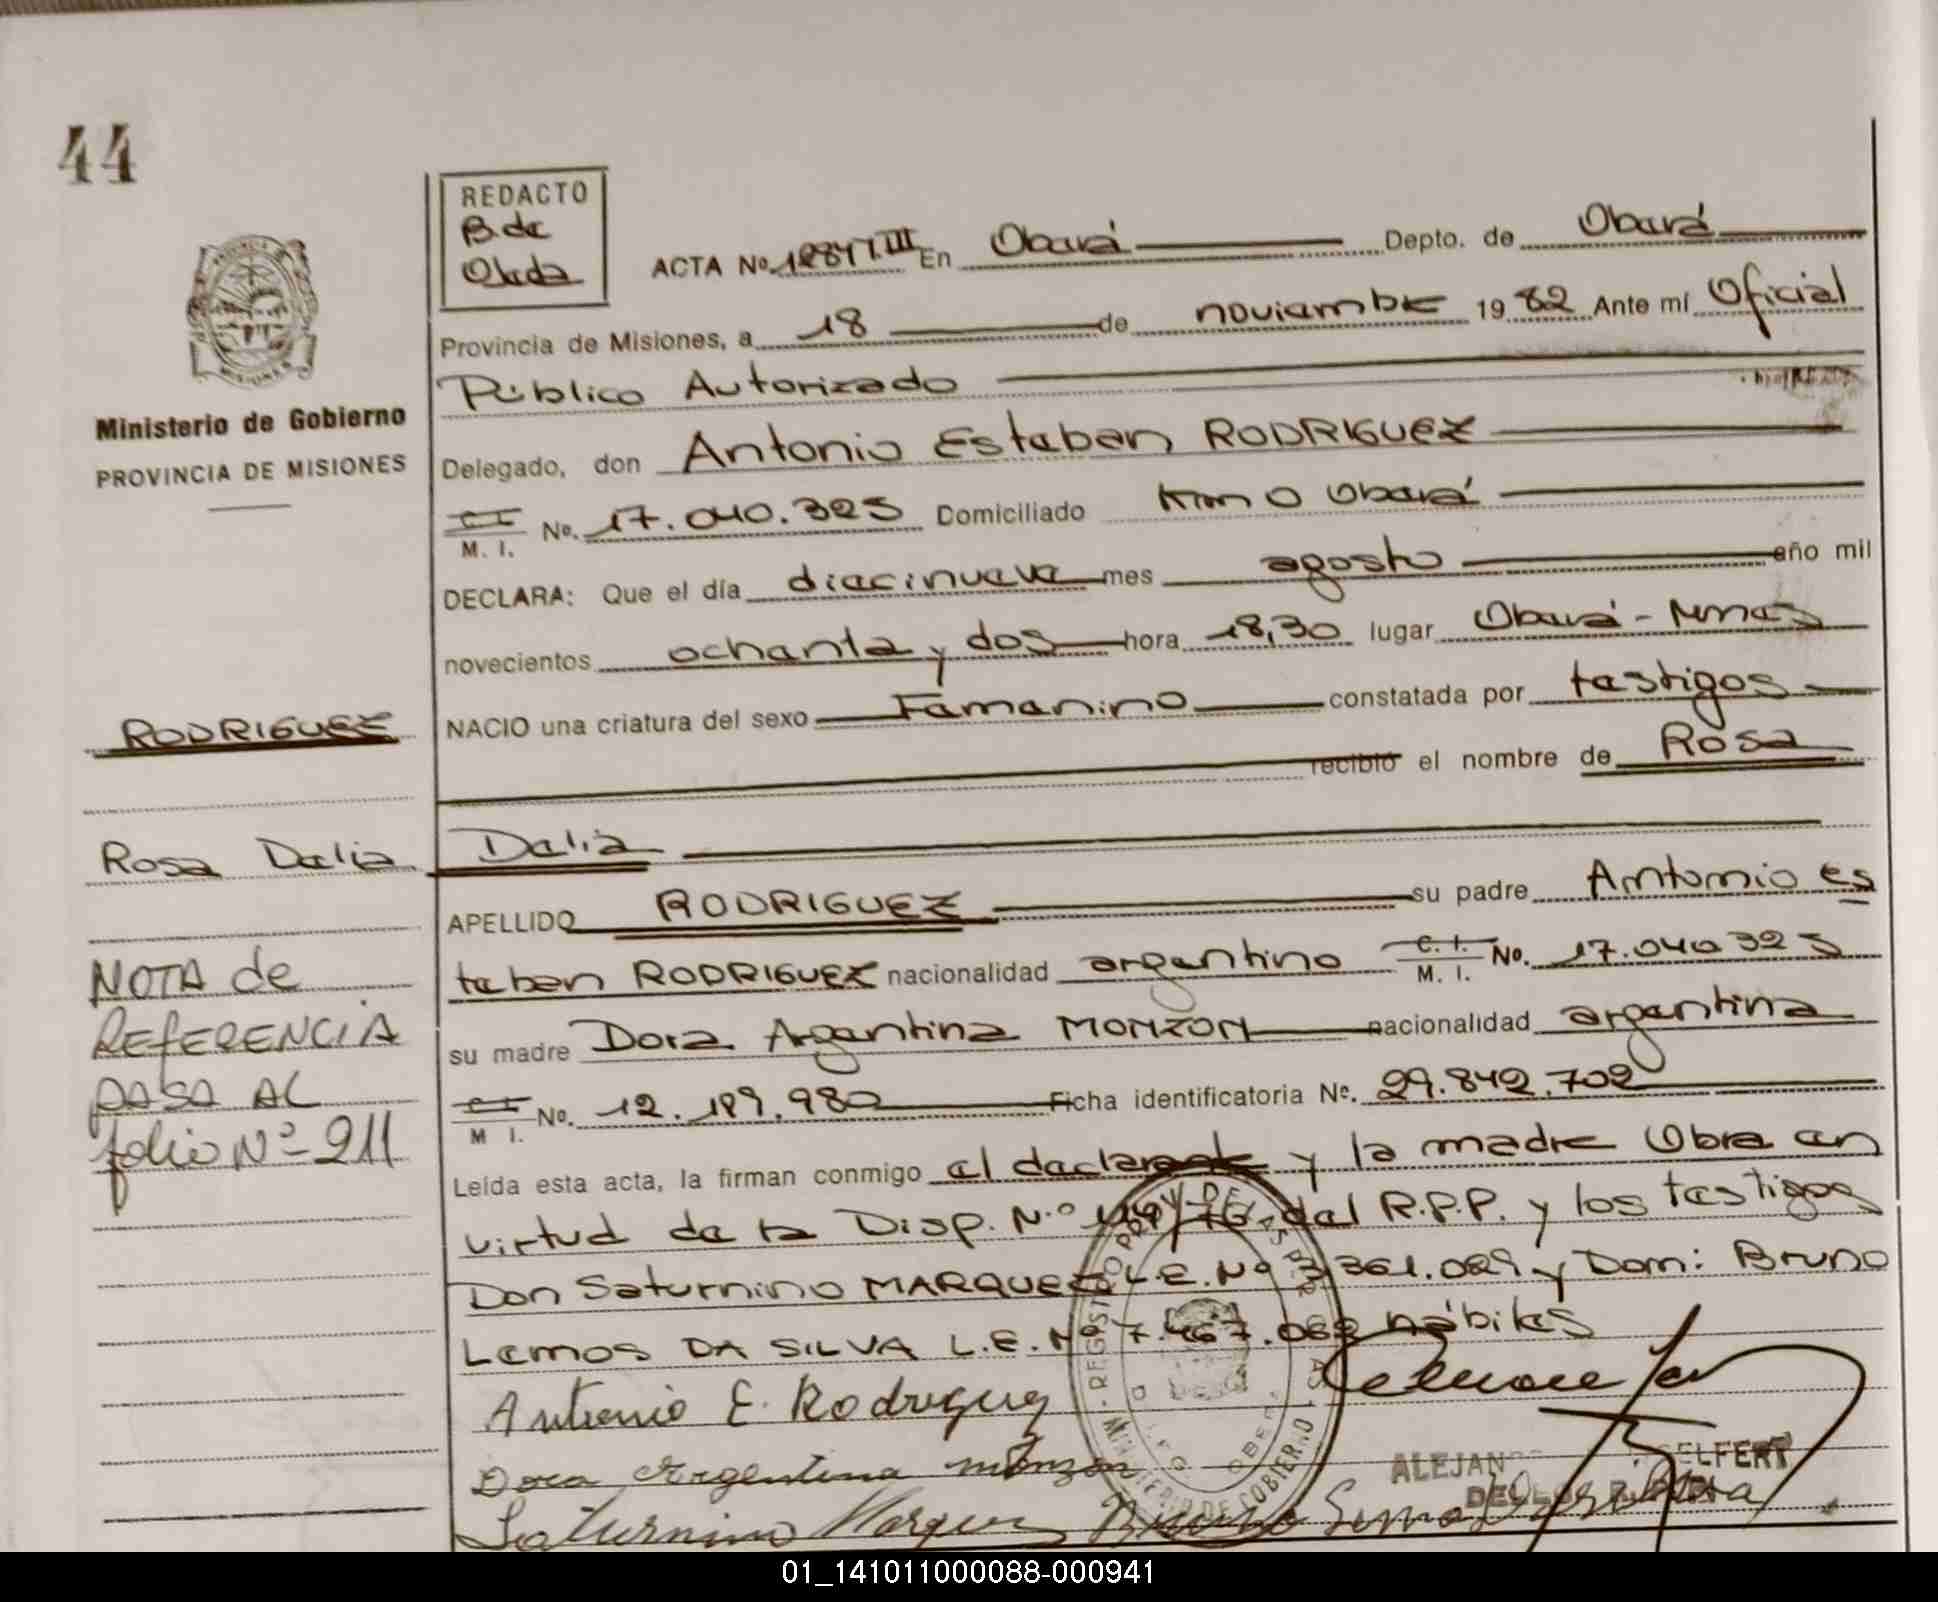 44
REDACTO
B. de
Olada
ACTA Nº 1284T.III En Oberá Depto. de Oberá
Provincia de Misiones, a 18 de noviembre 19 82 Ante mí Oficial
Público Autorizado
Delegado, don Antonio Esteben RODRIGUEZ
C.I. M. I. No. 17.040.325 Domiciliado Km 0 Oberá
DECLARA: Que el día diecinueve mes agosto año mil
novecientos ochenta y dos hora 18,30 lugar Oberá - Mnes
NACIO una criatura del sexo Femenino constatada por testigos
recibió el nombre de Rosa
Delia
APELLIDO RODRIGUEZ su padre Antonio es
teben RODRIGUEZ nacionalidad argentino C. I. M. I. No. 17.040325
su madre Dora Argentina MONZON nacionalidad argentina
C I M I. No. 12.189.980 Ficha identificatoria Nº. 29.842.702
Leída esta acta, la firman conmigo el declarante y la madre Obra en
virtud de la Disp. N.º del R.P.P. y los testigos
Don Saturnino MARQUEZ L.E. Nº 361.029 y Dom: Bruno
Lemos DA SILVA L.E. Nº 7.467.062 hábiles
Antonio E. Rodriguez
Dora Argentina monzon
Saturnino Marquez Bruno Lemo
ALEJAN SELFERT
REGISTRO DE LAS PER AS
MINISTERIO DE GOBIERNO
Ministerio de Gobierno
PROVINCIA DE MISIONES
RODRIGUEZ
Rosa Delia
NOTA de
REFERENCIA
PASA AL
folio Nº 211
01_141011000088-000941